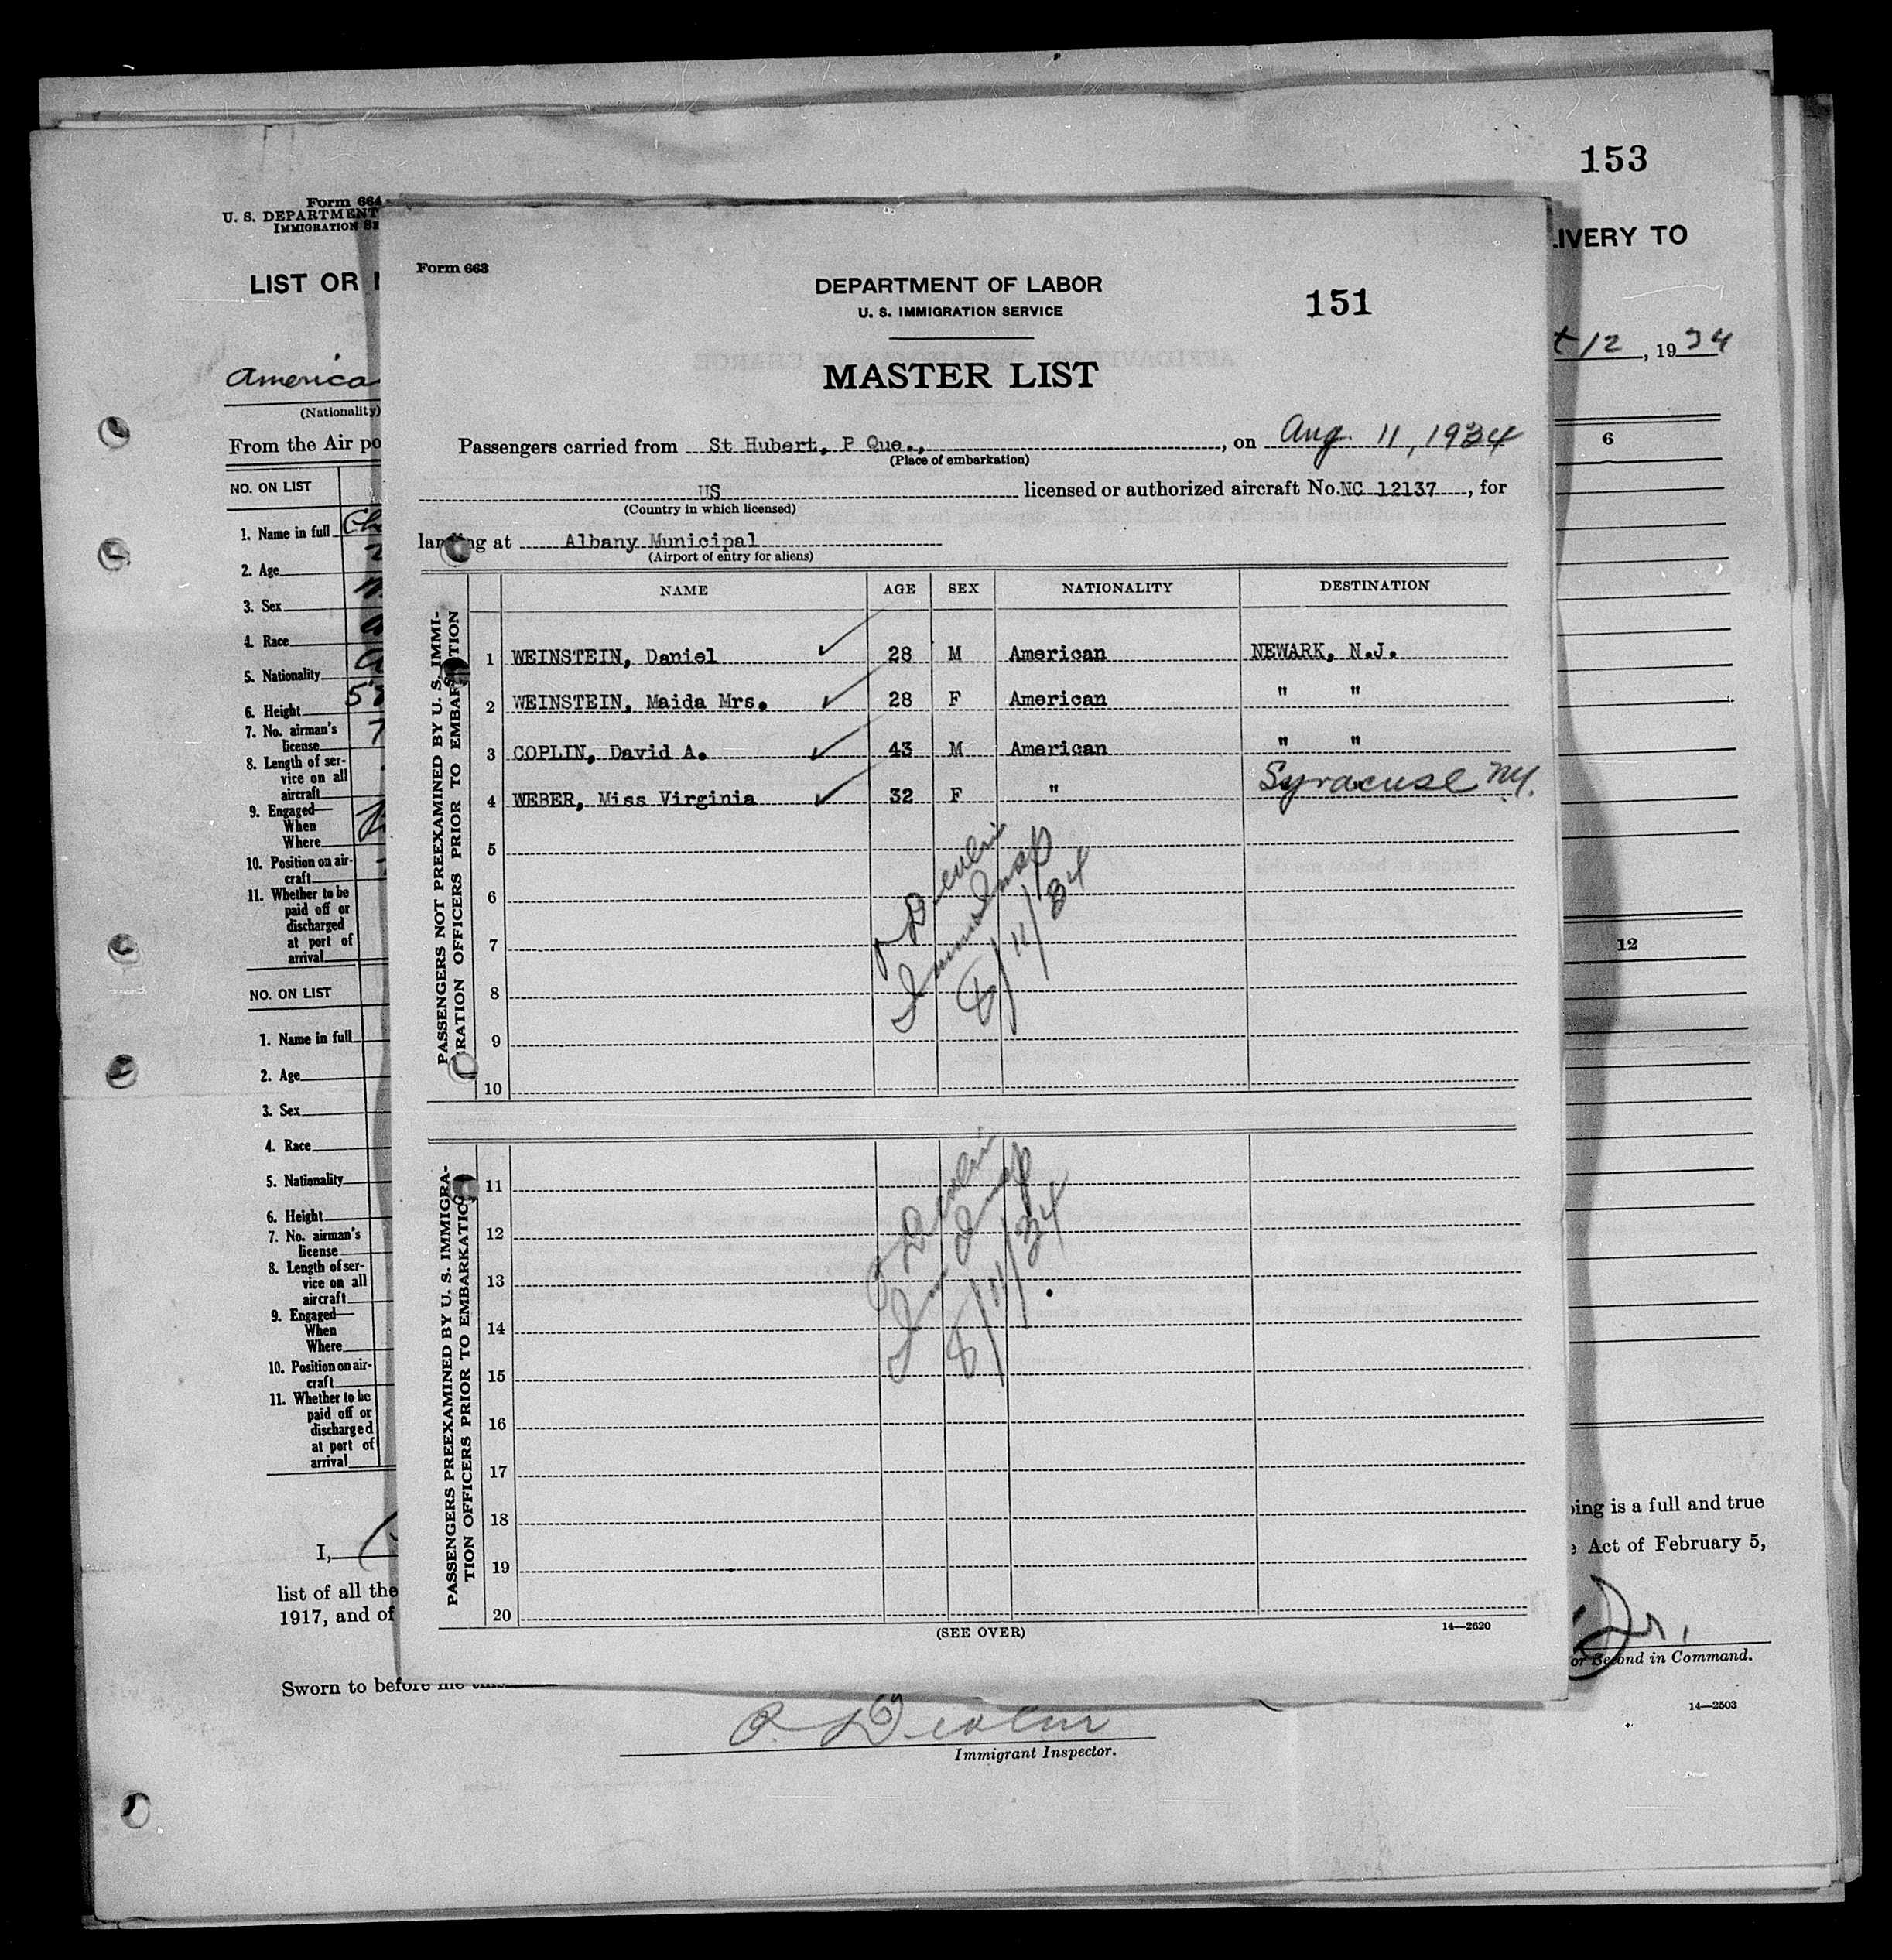 153
Form 664
U. S. DEPARTMENT
IMMIGRATION SE
LIST OR
LIVERY TO
America
(Nationality)
t 12, 1934
From the Air po
NO. ON LIST
6
1. Name in full
2. Age
3. Sex
4. Race
5. Nationality
6. Height
7. No. airman's
license
8. Length of ser-
vice on all
aircraft
9. Engaged—
When
Where
10. Position on air-
craft
11. Whether to be
paid off or
discharged
at port of
arrival
NO. ON LIST
12
1. Name in full
2. Age
3. Sex
4. Race
5. Nationality
6. Height
7. No. airman's
license
8. Length of ser-
vice on all
aircraft
9. Engaged—
When
Where
10. Position on air-
craft
11. Whether to be
paid off or
discharged
at port of
arrival
I,
oing is a full and true
list of all the
Act of February 5,
1917, and of
Jr.
or Second in Command.
Sworn to before me this
14—2503
Immigrant Inspector.
Form 663
DEPARTMENT OF LABOR
U. S. IMMIGRATION SERVICE
151
MASTER LIST
Passengers carried from St Hubert, P Que., on Aug. 11, 1934
(Place of embarkation)
US licensed or authorized aircraft No. NC 12137, for
(Country in which licensed)
landing at Albany Municipal
(Airport of entry for aliens)
NAME AGE SEX NATIONALITY DESTINATION
PASSENGERS NOT PREEXAMINED BY U. S. IMMI-
GRATION OFFICERS PRIOR TO EMBARKATION
1 WEINSTEIN, Daniel 28 M American NEWARK, N.J.
2 WEINSTEIN, Maida Mrs. 28 F American " "
3 COPLIN, David A. 43 M American " "
4 WEBER, Miss Virginia 32 F " Syracuse N.Y.
5
6
7
8
9
10
Immig Insp
8/11/34
PASSENGERS PREEXAMINED BY U. S. IMMIGRA-
TION OFFICERS PRIOR TO EMBARKATION
11
12
13
14
15
16
17
18
19
20
Imm Insp
8/11/34
(SEE OVER)
14—2620